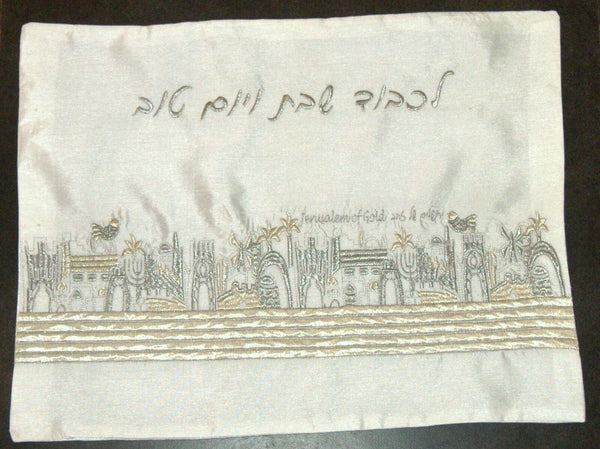 לכבוד שבת ויום טוב
Jerusalem of Gold ירושלים של זהב